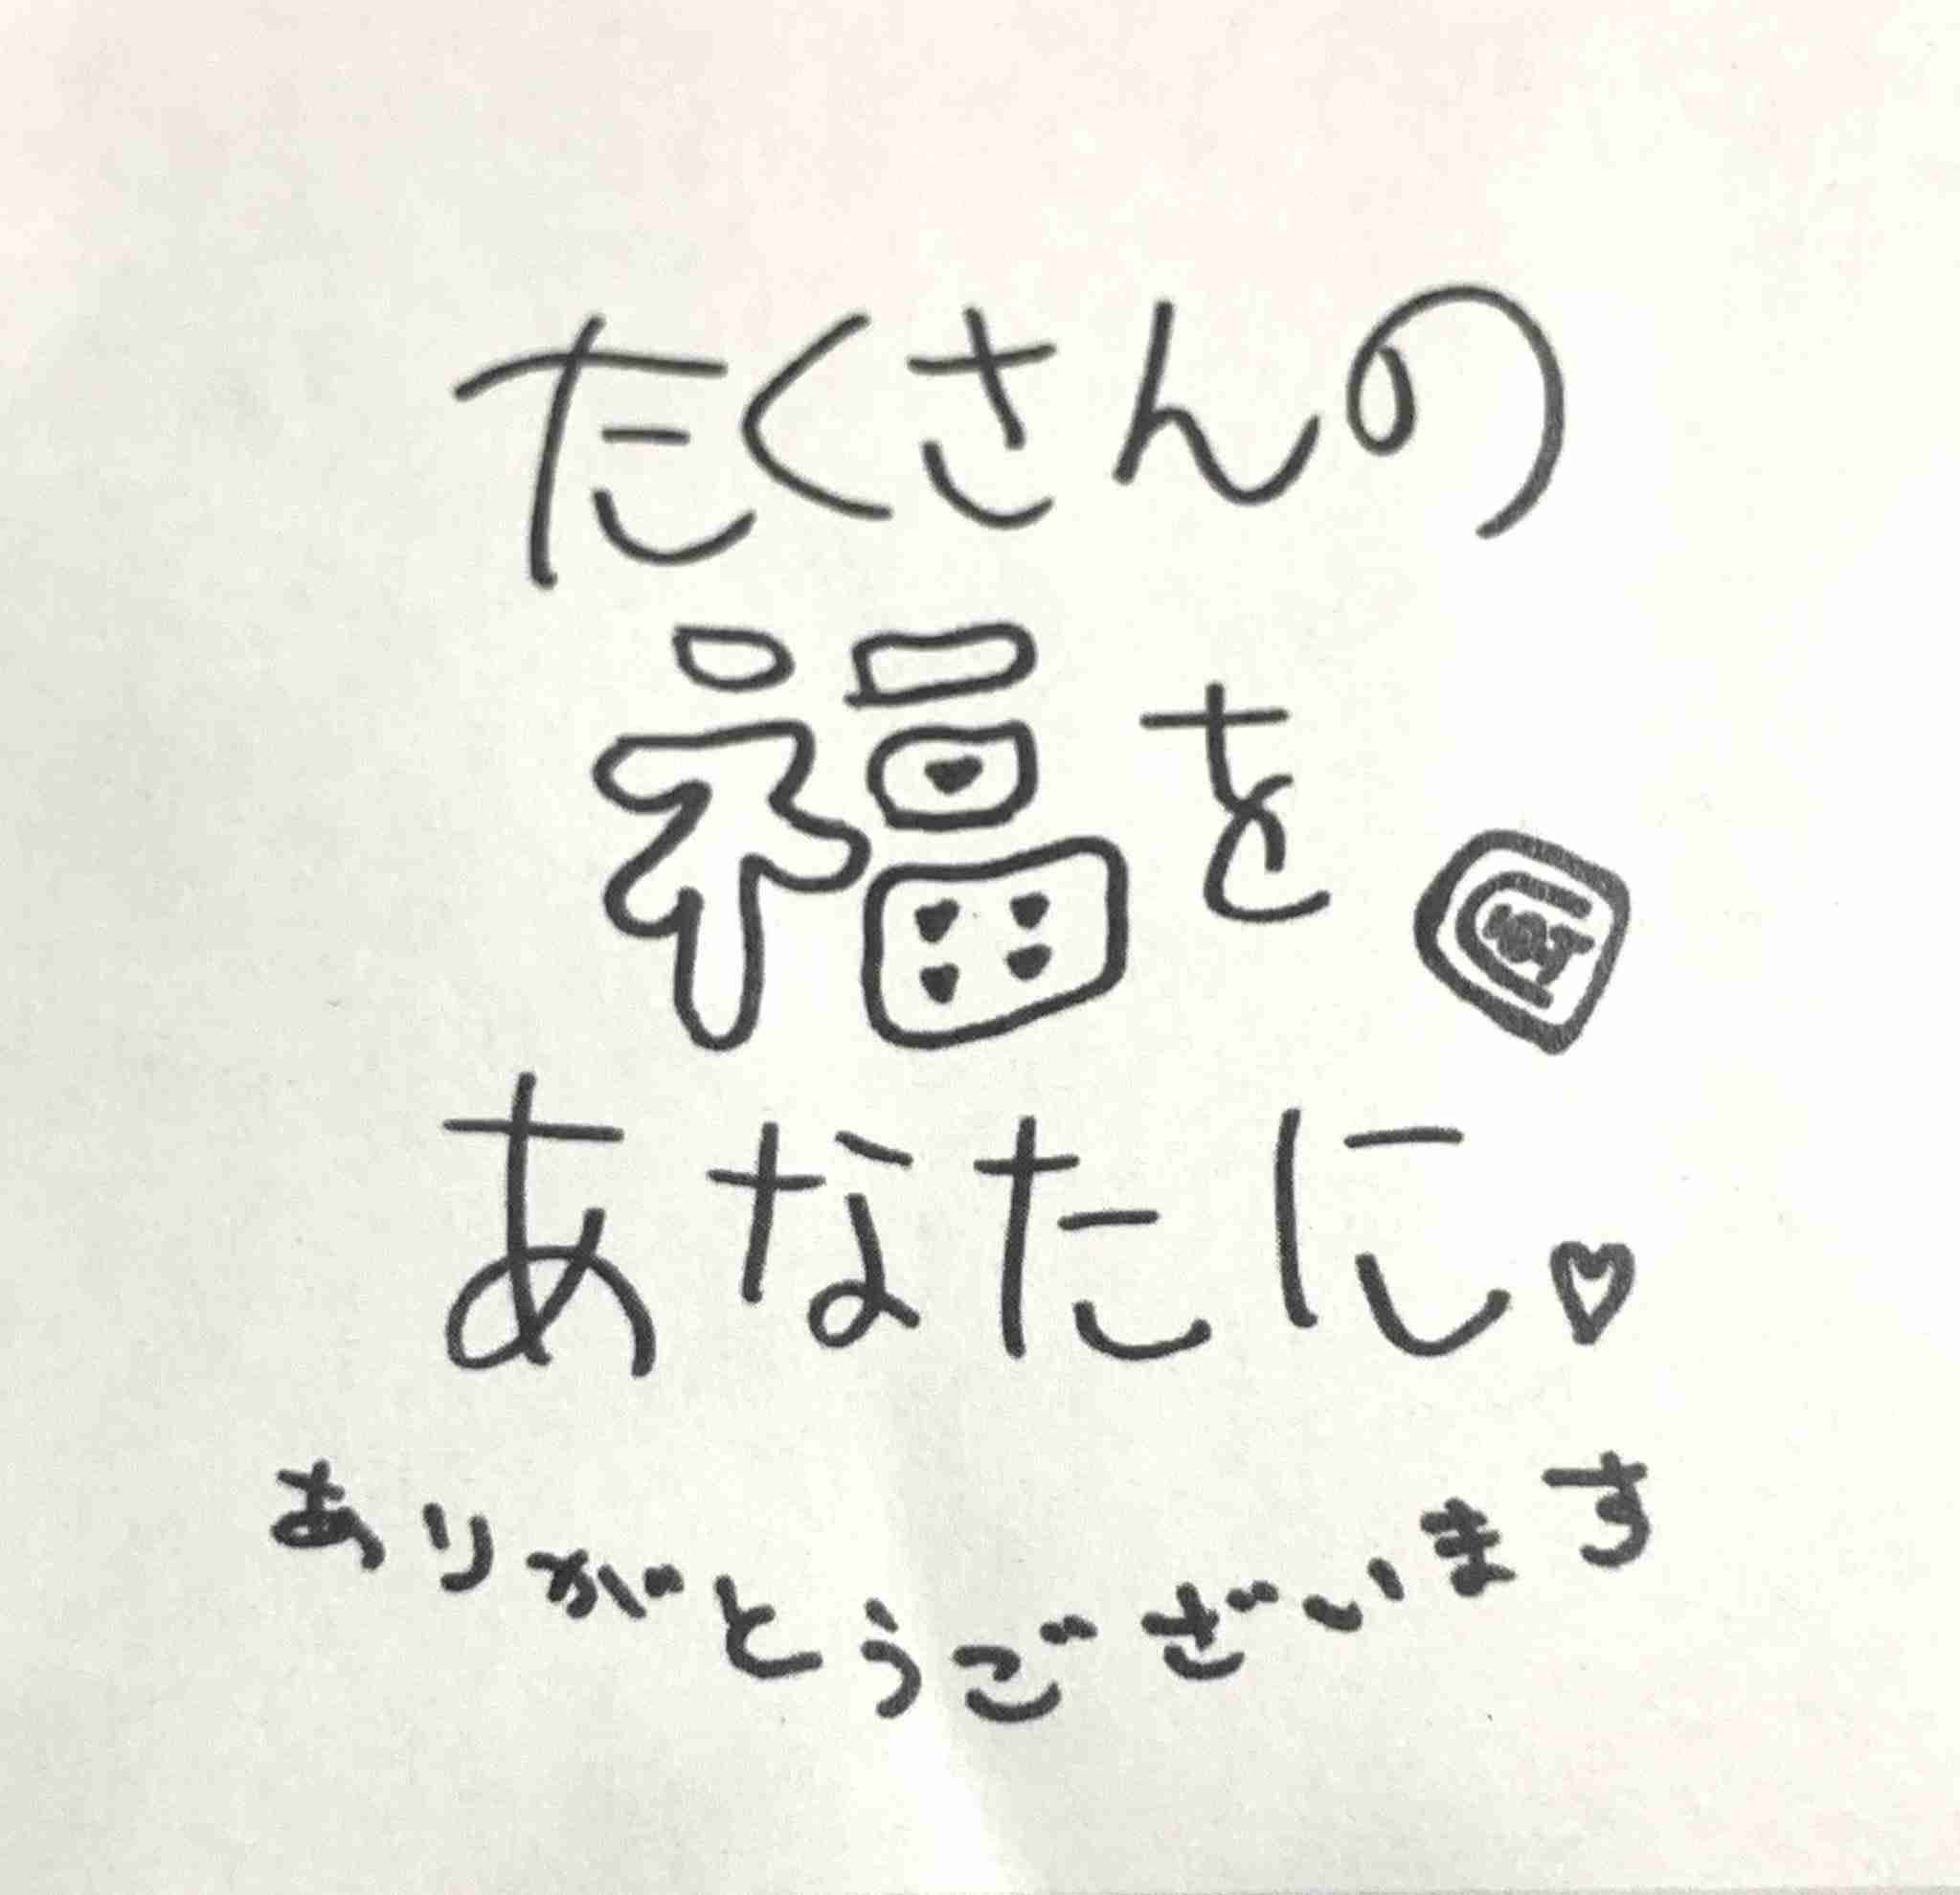 たくさんの
福を
あなたに♡
ありがとうございます